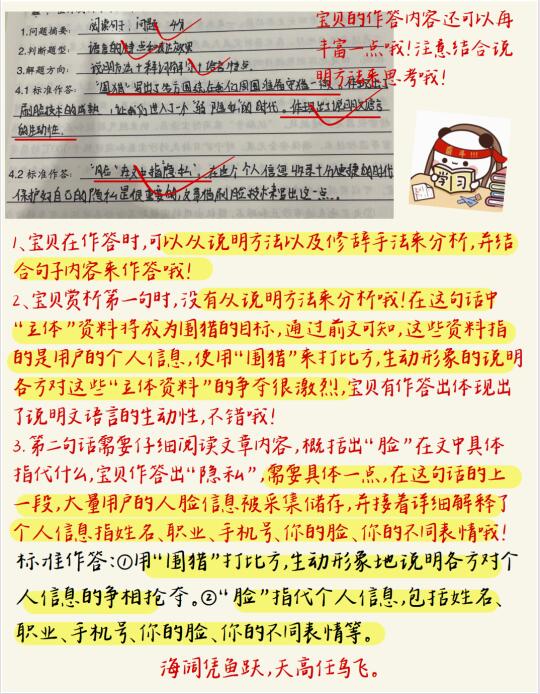 1.问题摘要: 阅读句子,问题 4分
2.判断题型: 语言的特点和表达效果
3.解题方向: 说明方法+
4.1标准作答: "围猎"写出了
刷脸技术的成熟,让我们进入了一个"弱隐私"的时代。体现出了说明文语言
的生动性。
4.2标准作答: "脸"在文中指隐私,在这个个人信息收录十分便捷的时代
保护好自己的隐私是很重要的,文章借刷脸技术来写出这一点.
宝贝的作答内容还可以再
丰富一点哦!注意结合说
明方法来思考哦!
奋斗!!!
学习
1、宝贝在作答时,可以从说明方法以及修辞手法来分析,并结
合句子内容来作答哦!
2、宝贝赏析第一句时,没有从说明方法来分析哦!在这句话中
"立体"资料将成为围猎的目标,通过前文可知,这些资料指
的是用户的个人信息,使用"围猎"来打比方,生动形象的说明
各方对这些"立体资料"的争夺很激烈,宝贝有作答出体现出
了说明文语言的生动性,不错哦!
3.第二句话需要仔细阅读文章内容,概括出"脸"在文中具体
指代什么,宝贝作答出"隐私",需要具体一点,在这句话的上
一段,大量用户的人脸信息被采集储存,并接着详细解释了
个人信息指姓名、职业、手机号、你的脸、你的不同表情哦!
标准作答:①用"围猎"打比方,生动形象地说明各方对个
人信息的争相抢夺。②"脸"指代个人信息,包括姓名、
职业、手机号、你的脸、你的不同表情等。
海阔凭鱼跃,天高任鸟飞。